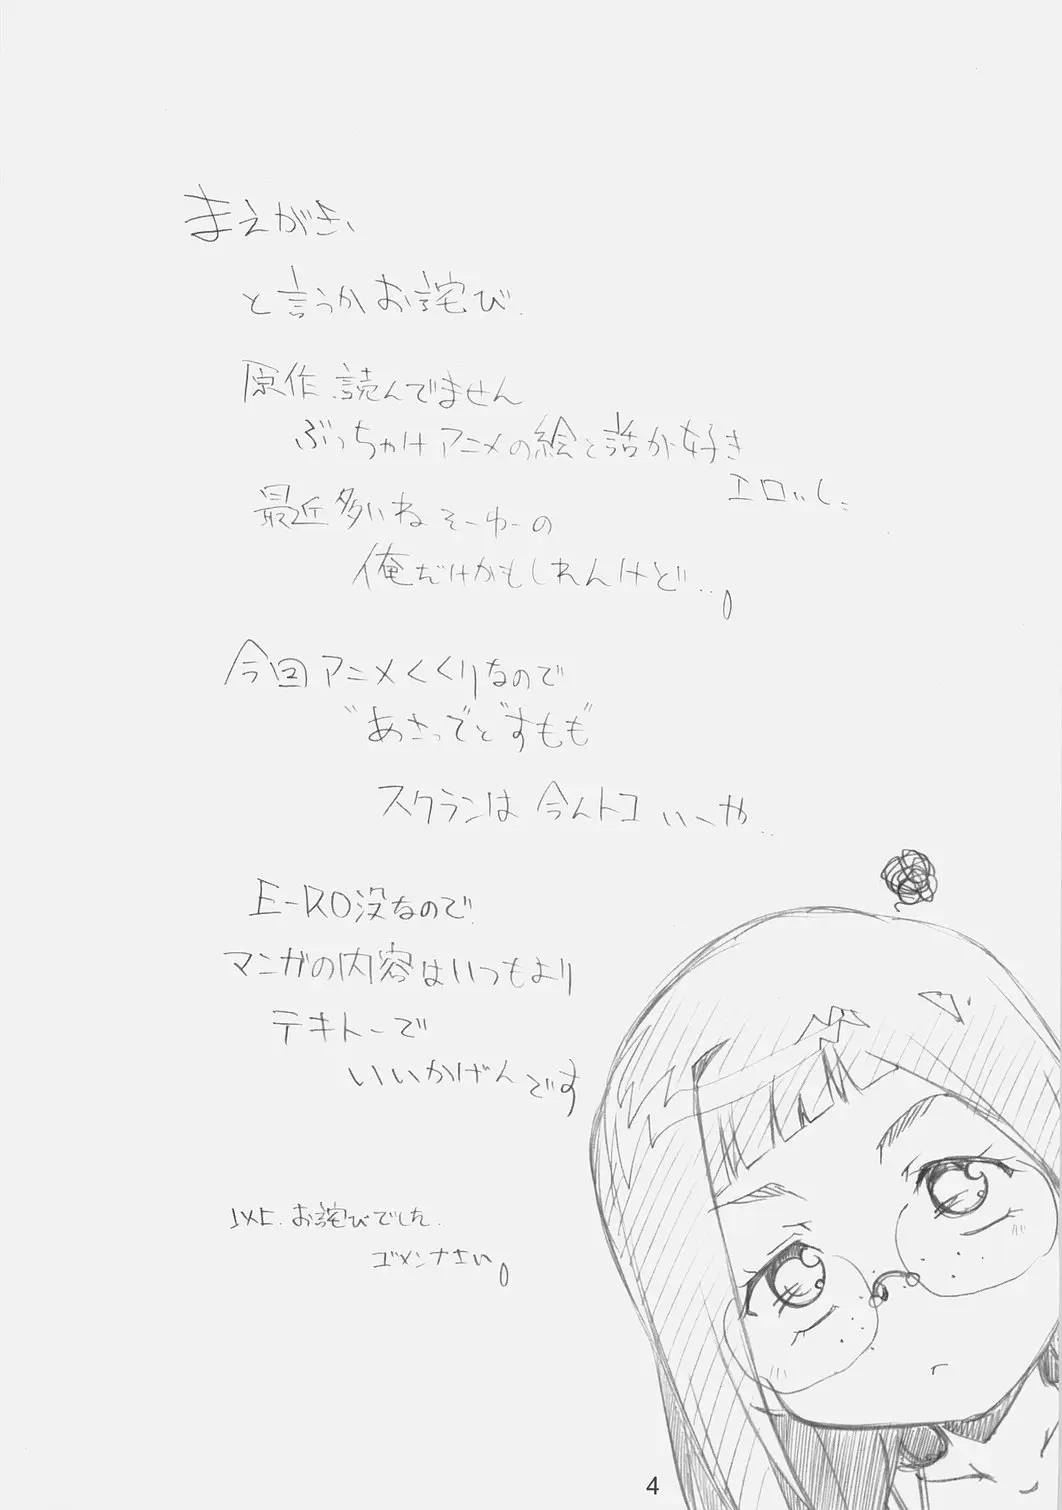 まえがき、
と言うかお詫び.
原作読んでません
ぶっちゃけアニメの絵と話が好き
エロいし..
最近多いねそーゆーの
俺だけかもしれんけど...。
今回アニメくくりなので
"あさってど"すもも"
スクランは今んトコいーや..
E-RO没なので
マンガの内容はいつもより
テキトーで
いいかげんです
以上.お詫びでした.
ゴメンナさい。
4